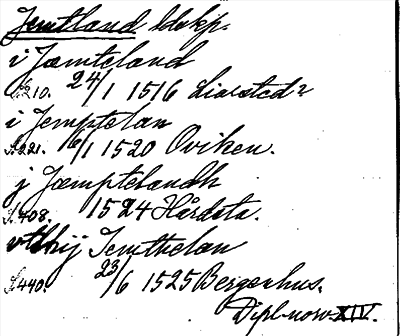 Jemtland ldskp.
i Jæmteland
S.210. 24/1 1516 Liarsted?
i Jemptelan
S.221. 6/1 1520 Oviken.
j Jæmptelandh
S.408. 1524 Hårdsta.
vthij Jemthelan
S.440. 23/6 1525 Bergenhus.
Dipl. norv. XIV.